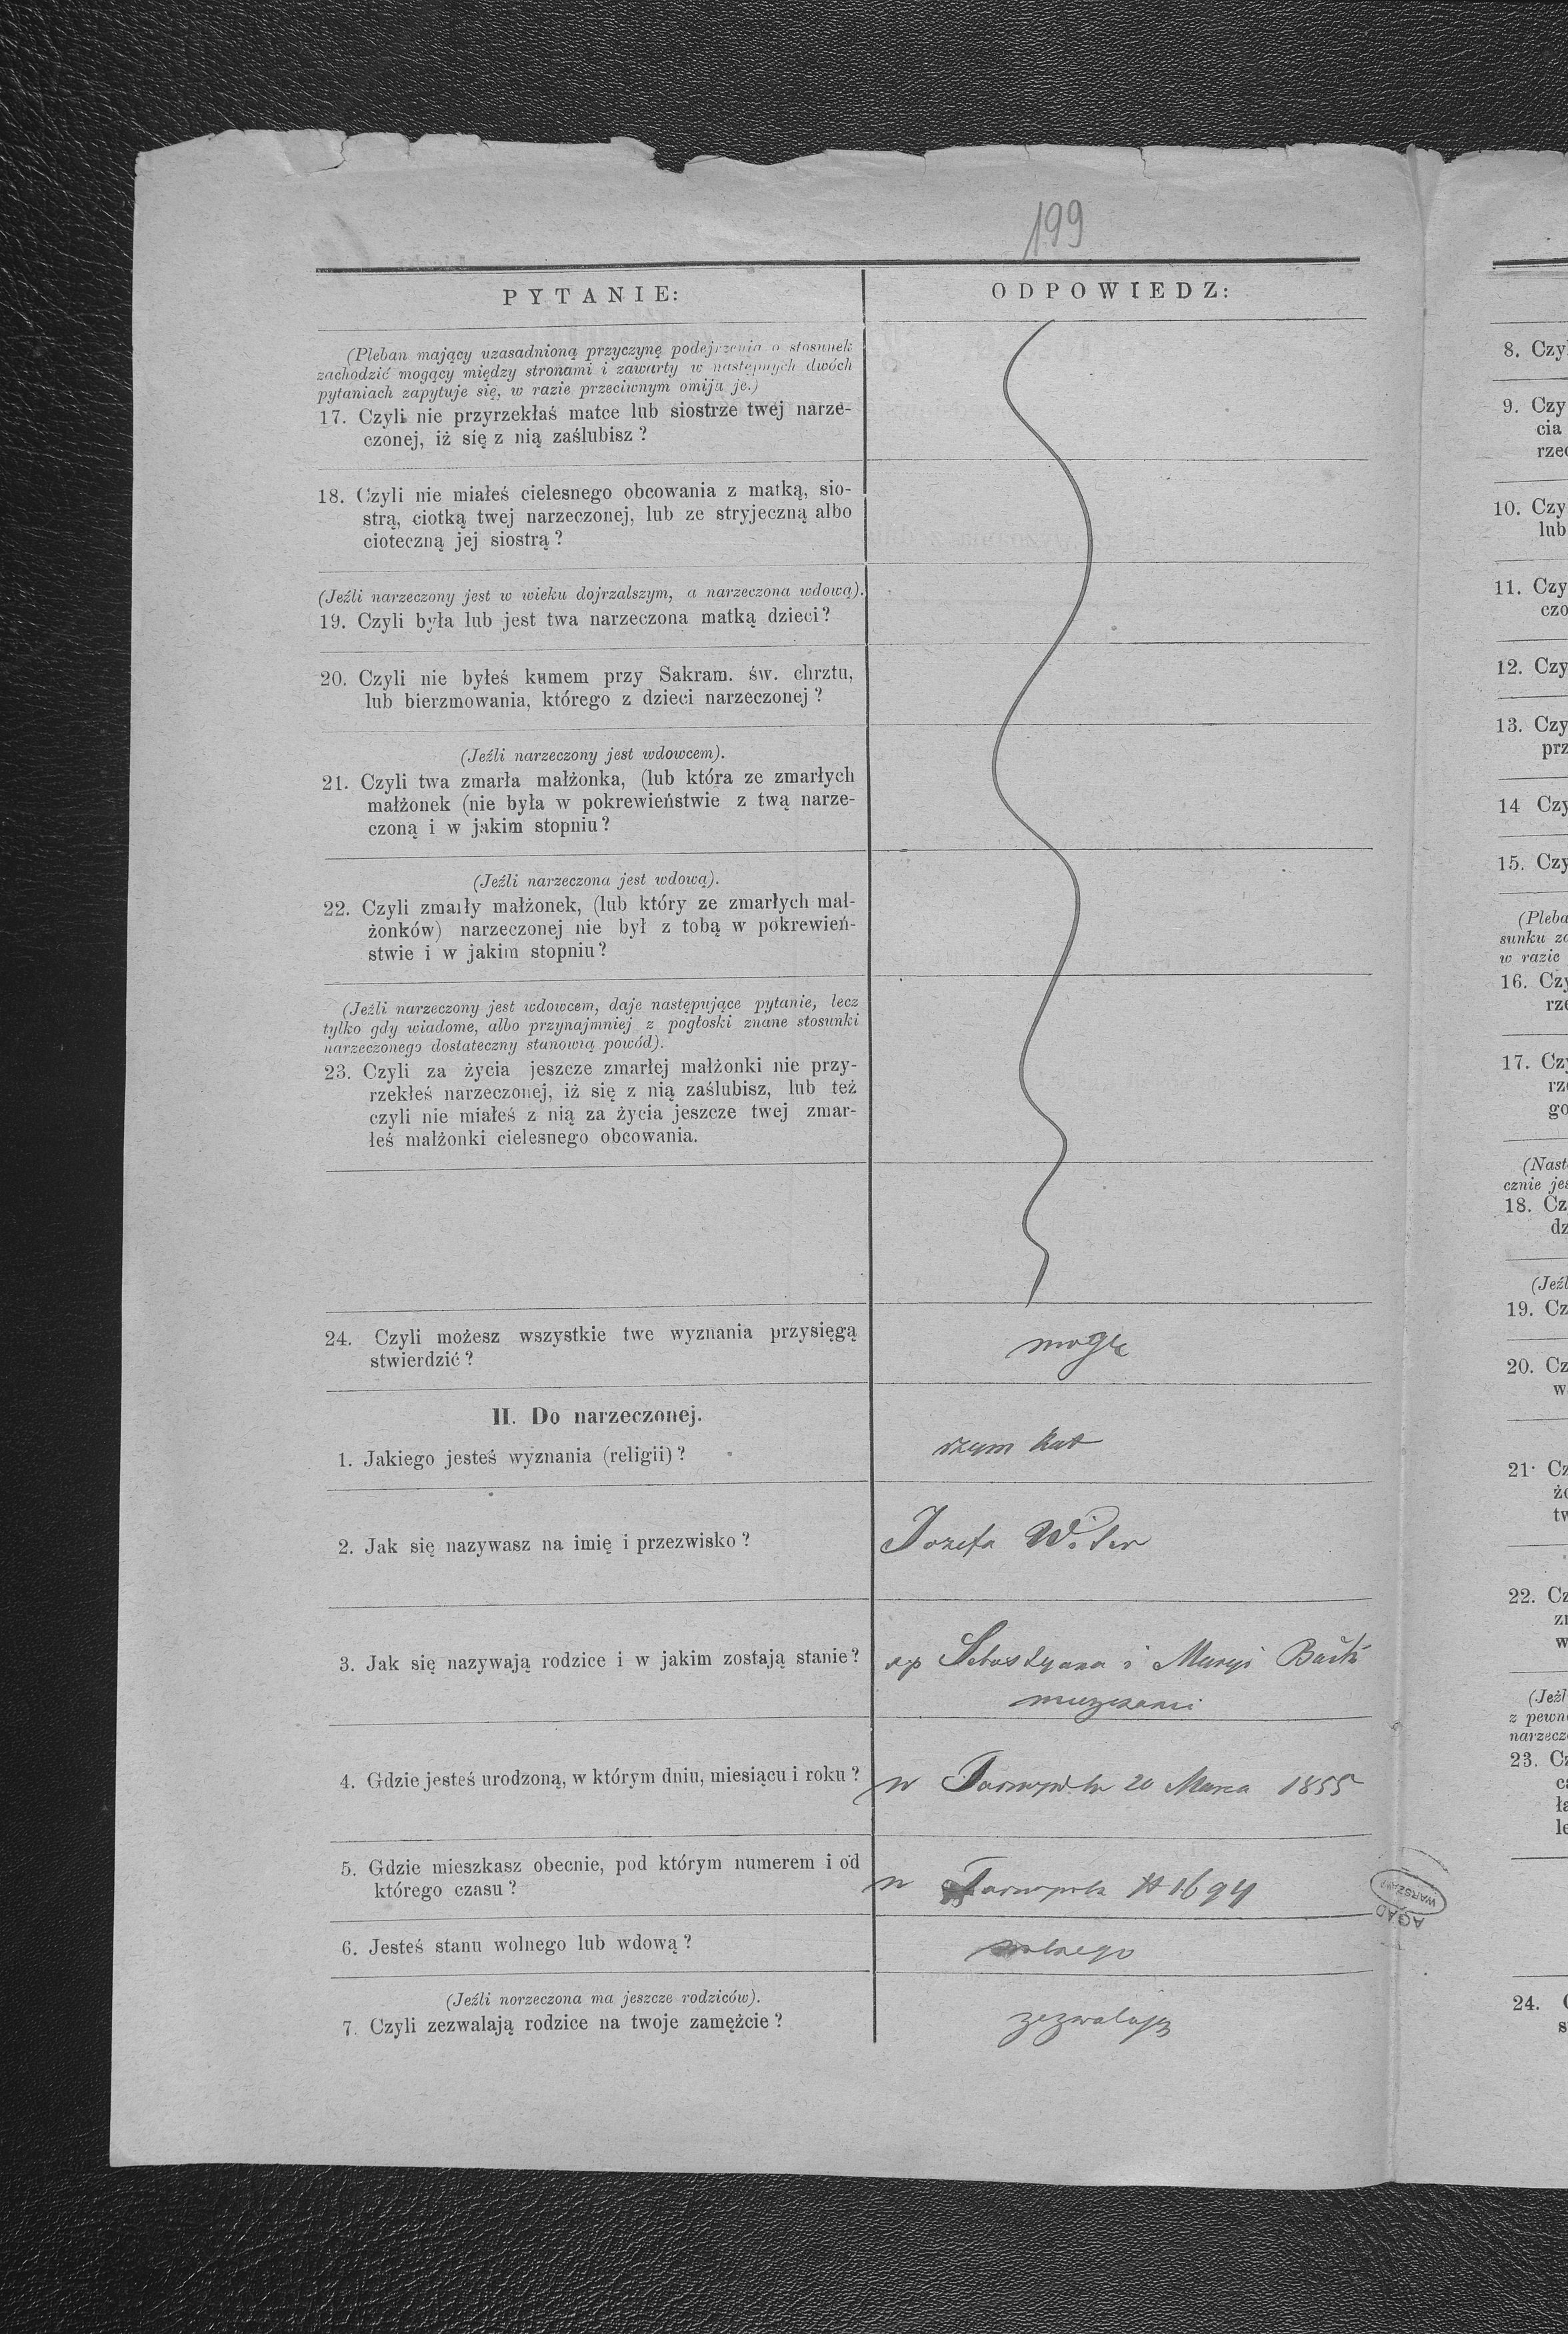 199
PYTANIE:
ODPOWIEDZ:
(Pleban mający uzasadnioną przyczynę podejrzenia o stosunek
zachodzić mogący między stronami i zawarty w następnych dwóch
pytaniach zapytuje się, w razie przeciwnym omija je.)
17. Czyli nie przyrzekłaś matce lub siostrze twej narze-
czonej, iż się z nią zaślubisz?
18. Czyli nie miałeś cielesnego obcowania z matką, sio-
strą, ciotką twej narzeczonej, lub ze stryjeczną albo
cioteczną jej siostrą?
(Jeźli narzeczony jest w wieku dojrzalszym, a narzeczona wdową).
19. Czyli była lub jest twa narzeczona matką dzieci?
20. Czyli nie byłeś kumem przy Sakram. św. chrztu,
lub bierzmowania, którego z dzieci narzeczonej?
(Jeźli narzeczony jest wdowcem).
21. Czyli twa zmarła małżonka, (lub która ze zmarłych
małżonek (nie była w pokrewieństwie z twą narze-
czoną i w jakim stopniu?
(Jeźli narzeczona jest wdową).
22. Czyli zmarły małżonek, (lub który ze zmarłych mał-
żonków) narzeczonej nie był z tobą w pokrewień-
stwie i w jakim stopniu?
(Jeźli narzeczony jest wdowcem, daje następujące pytanie, lecz
tylko gdy wiadome, albo przynajmniej z pogłoski znane stosunki
narzeczonego dostateczny stanowią powód).
23. Czyli za życia jeszcze zmarłej małżonki nie przy-
rzekłeś narzeczonej, iż się z nią zaślubisz, lub też
czyli nie miałeś z nią za życia jeszcze twej zmar-
łeś małżonki cielesnego obcowania.
24. Czyli możesz wszystkie twe wyznania przysięgą
stwierdzić?
mogę
II. Do narzeczonej.
1. Jakiego jesteś wyznania (religii)?
rzym kat
2. Jak się nazywasz na imię i przezwisko?
Jozefa
3. Jak się nazywają rodzice i w jakim zostają stanie?
Sebastyana i Maryi
4. Gdzie jesteś urodzoną, w którym dniu, miesiącu i roku?
w 20 Marca 1855
5. Gdzie mieszkasz obecnie, pod którym numerem i od
którego czasu?
w 1694
6. Jesteś stanu wolnego lub wdową?
wolnego
(Jeźli norzeczona ma jeszcze rodziców).
7. Czyli zezwalają rodzice na twoje zamężcie?
zezwalają
AGAD
WARSZAWA
8. Czy
9. Czy
cia
rzec
10. Czy
lub
11. Czy
czo
12. Czy
13. Czy
prz
14 Czy
15. Czy
(Pleba
sunku za
w razie
16. Czy
rze
17. Czy
rze
go
(Nast
cznie jes
18. Cz
dz
(Jeźl
19. Cz
20. Cz
w
21. Cz
żo
tw
22. Cz
zm
w
(Jeźl
z pewn
narzecz
23. Cz
24.